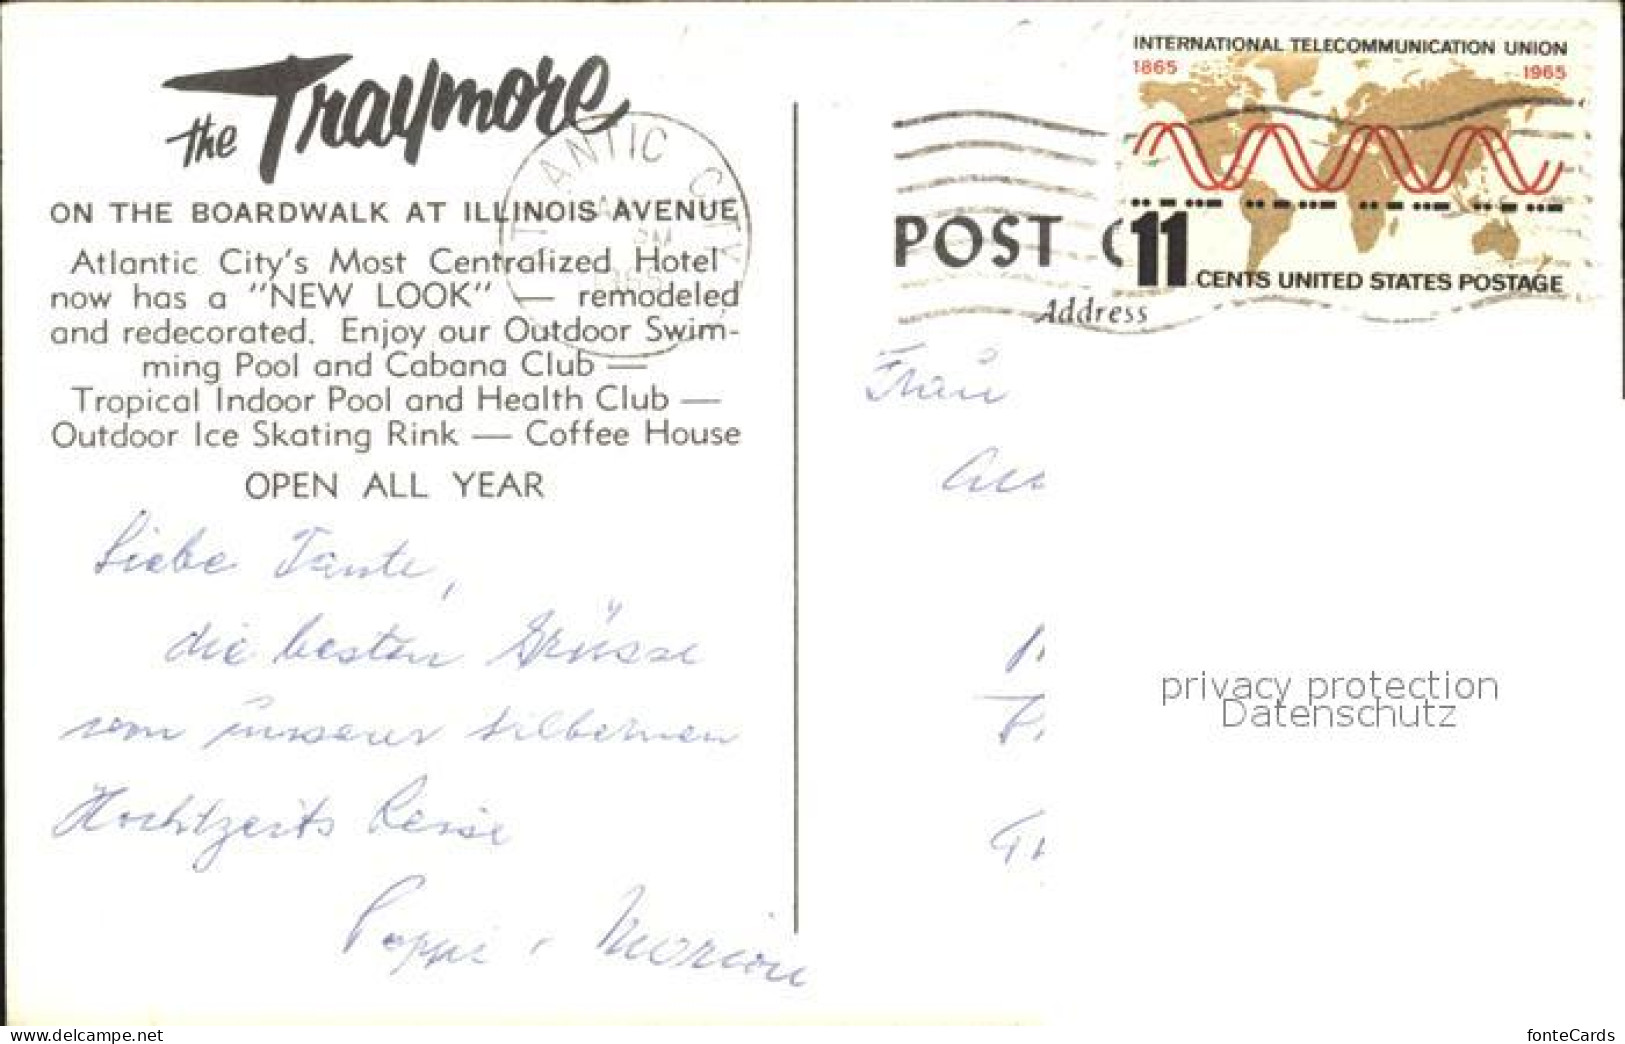 the Traymore
ON THE BOARDWALK AT ILLINOIS AVENUE
Atlantic City's Most Centralized Hotel
now has a "NEW LOOK" — remodeled
and redecorated. Enjoy our Outdoor Swim-
ming Pool and Cabana Club —
Tropical Indoor Pool and Health Club —
Outdoor Ice Skating Rink — Coffee House
OPEN ALL YEAR
Liebe Tante,
die besten Grüsse
von unserer silbernen
Hochtzeits Reise
Poppi, Marion
ATLANTIC CITY
PM
INTERNATIONAL TELECOMMUNICATION UNION
1865 1965
11 CENTS UNITED STATES POSTAGE
POST C
Address
Frau
privacy protection
Datenschutz
www.ansichtskartenversand.com
fonteCards